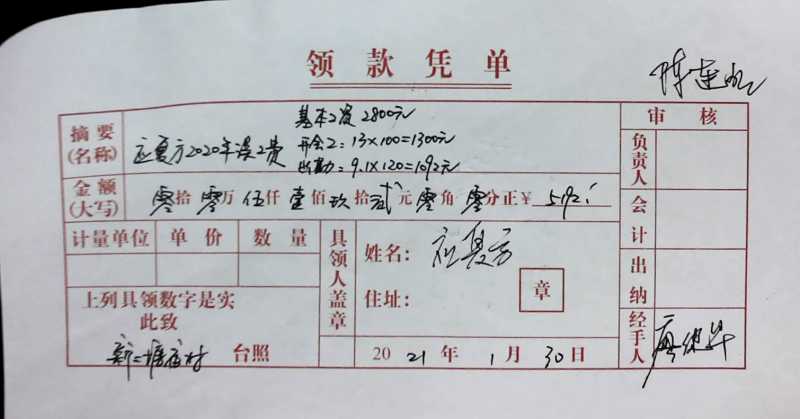 领款凭单
审核
摘要(名称)
应夏方2020年误工费
基本工资 2800元
开会工: 13×100=1300元
出勤: 9.1×120=1092元
金额(大写)
零拾零万伍仟壹佰玖拾贰元零角零分正¥ 5192
计量单位 单价 数量
具领人盖章
姓名: 应夏方
住址:
章
上列具领数字是实
此致
台照
2021年1月30日
负责人
会计
出纳
经手人